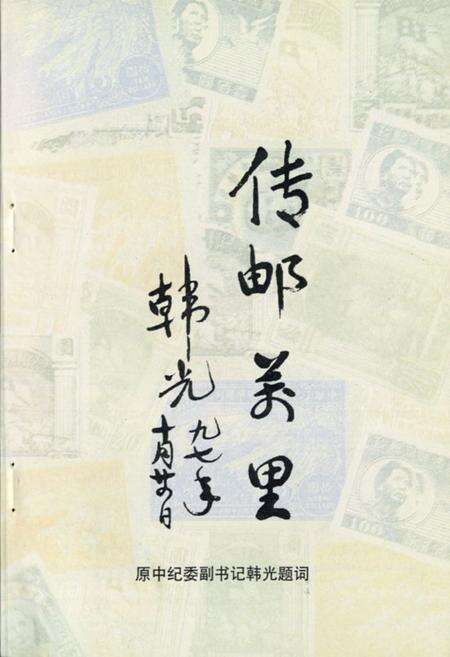 传邮万里
韩光
九七年
十月廿日
原中纪委副书记韩光题词